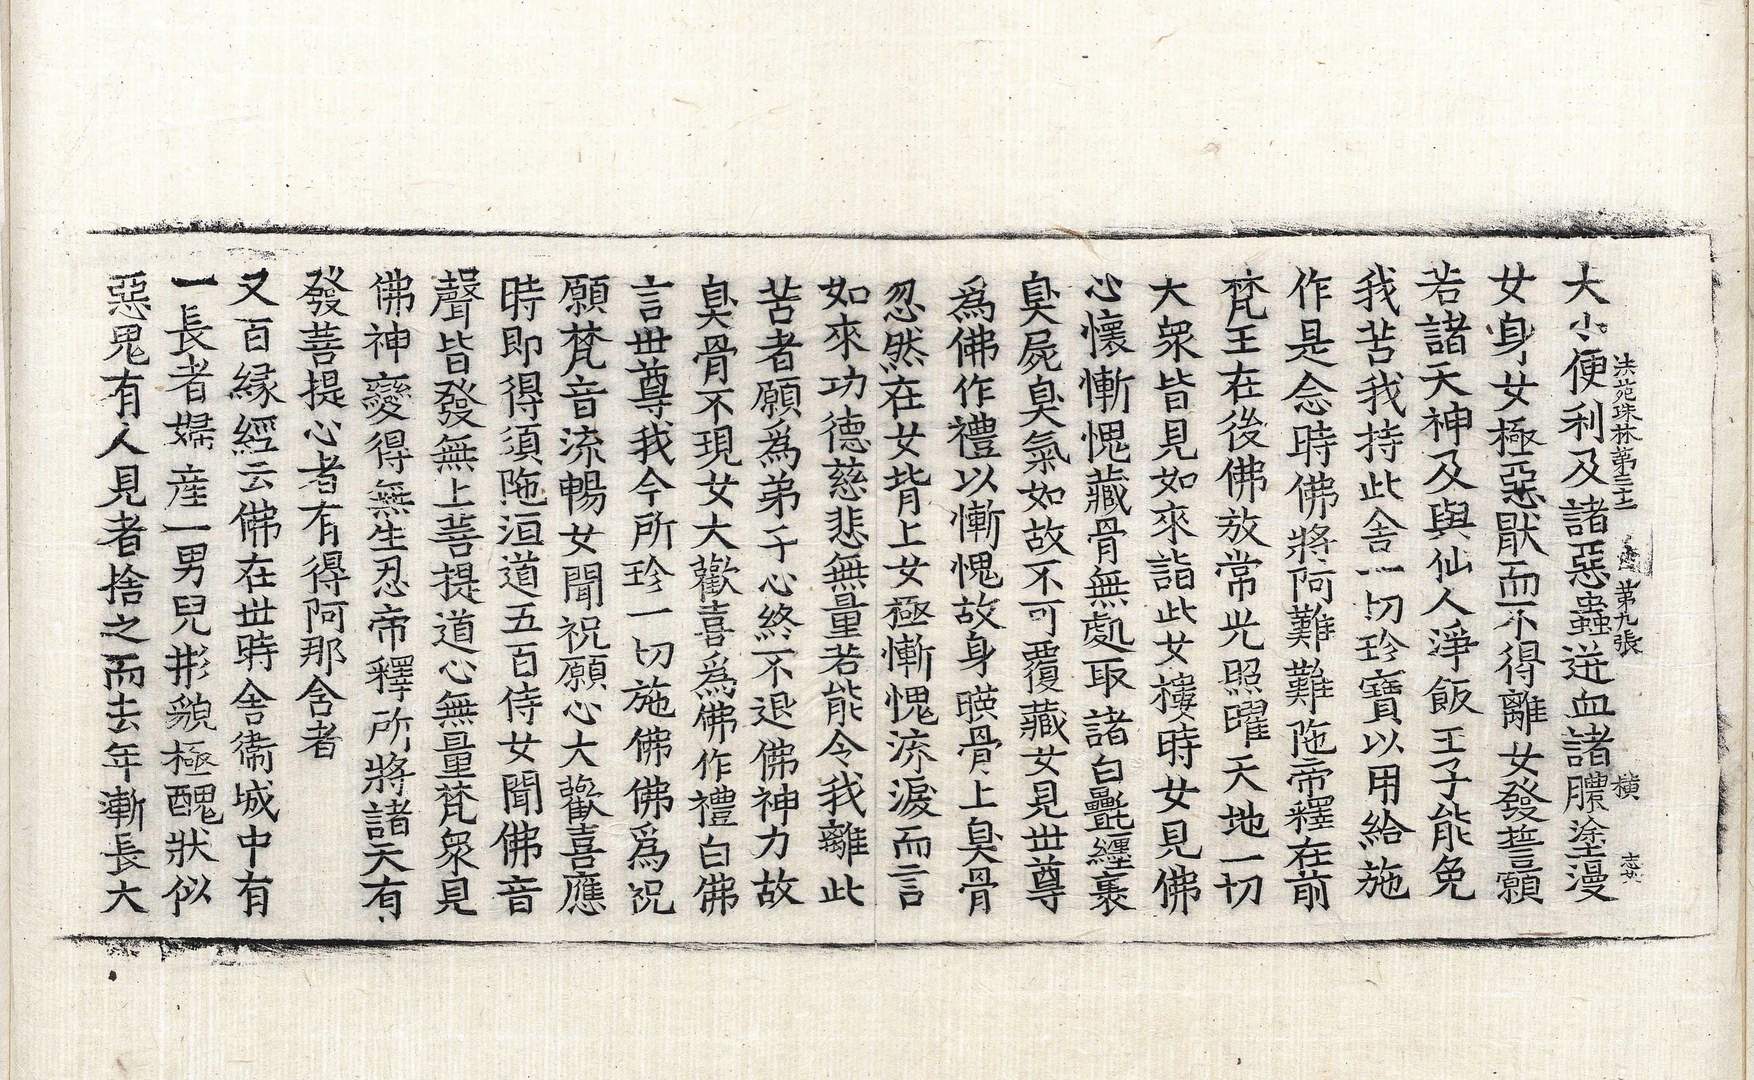 大小便利及諸惡蟲迸血諸膿塗漫
法苑珠林第二十三 第九張 橫
女身女極惡猒而不得離女發誓願
若諸天神及與仙人淨飯王子能免
我苦我持此舍一切珍寶以用給施
作是念時佛將阿難難陁帝釋在前
梵王在後佛放常光照曜天地一切
大衆皆見如來詣此女樓時女見佛
心懷慚愧藏骨無處取諸白㲲纏裹
臭屍臭氣如故不可覆藏女見世尊
爲佛作禮以慚愧故身暎骨上臭骨
忽然在女背上女極慚愧流淚而言
如來功德慈悲無量若能令我離此
苦者願爲弟子心終不退佛神力故
臭骨不現女大歡喜爲佛作禮白佛
言世尊我今所珍一切施佛佛爲祝
願梵音流暢女聞祝願心大歡喜應
時即得須陁洹道五百侍女聞佛音
聲皆發無上菩提道心無量梵衆見
佛神變得無生忍帝釋所將諸天有
發菩提心者有得阿那含者
又百緣經云佛在世時舍衞城中有
一長者婦產一男兒形貌極醜狀似
惡鬼有人見者捨之而去年漸長大